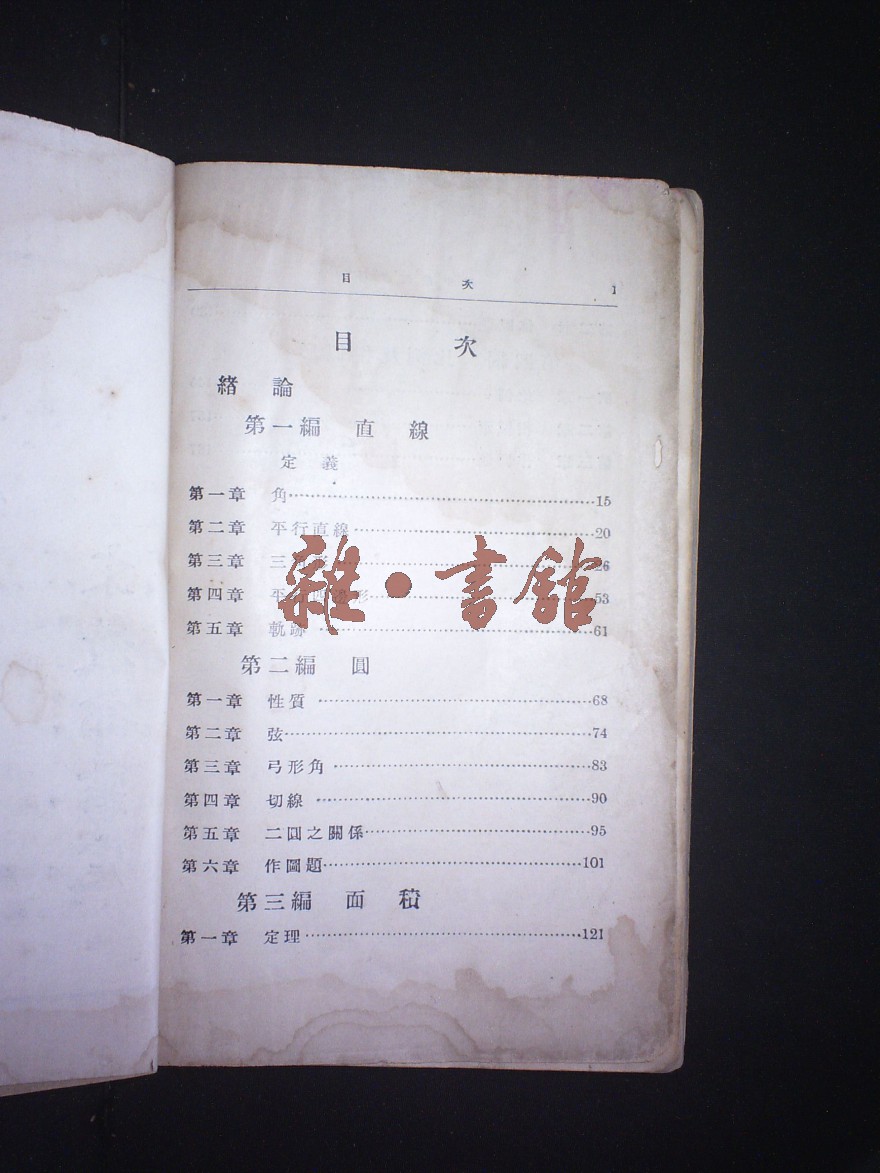 目 次 1
目 次
緒 論
第一編 直 線
定 義
第一章 角……15
第二章 平行直線……20
第三章 三角形……26
第四章 平行四邊形……53
第五章 軌跡……61
雜·書館
第二編 圓
第一章 性質……68
第二章 弦……74
第三章 弓形角……83
第四章 切線……90
第五章 二圓之關係……95
第六章 作圖題……101
第三編 面 積
第一章 定理……121